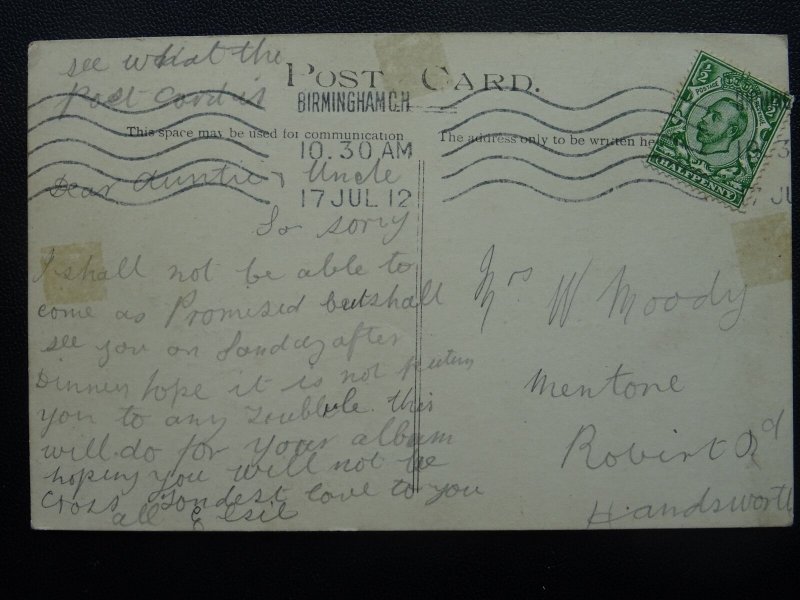 see what the
Post Card is
POST CARD.
BIRMINGHAM C.H
10.30 AM
17 JUL 12
This space may be used for communication
The address only to be written he
½ ½
POSTAGE
HALFPENNY
Dear Auntie & Uncle
So sorry
I shall not be able to
come as Promised but shall
see you on Sunday after
Dinner hope it is not puting
you to any Toubble. this
will do for your album
hoping you will not be
Cross fondest love to you
all Elsie
Mrs W. Moody
Mentone
Robirt Rd
Handsworth